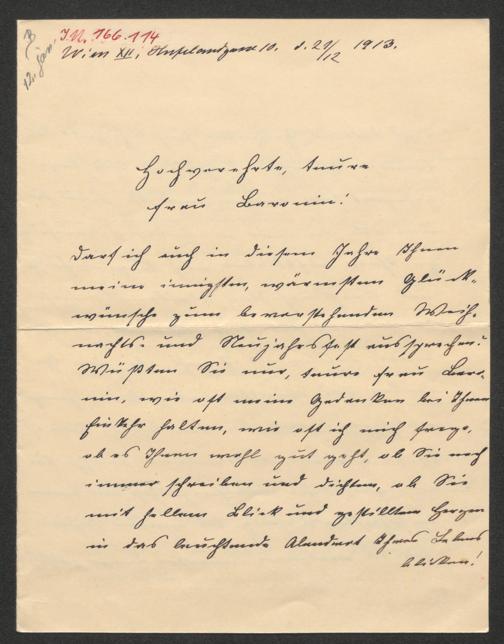 B
12. Jän.
I.N. 166.114
Wien XII, Hufelandgasse 10. d. 21/12 1913.
Hochverehrte, teure
Frau Baronin!
Darf ich auch in diesem Jahre Ihnen
meine innigsten, wärmsten Glück-
wünsche zum bevorstehenden Weih-
nachts- und Neujahrsfest aussprechen?
Wüßten Sie nur, teure Frau Baro-
nin, wie oft meine Gedanken bei Ihnen
Einkehr halten, wie oft ich mich frage,
ob es Ihnen wohl gut geht, ob Sie noch
immer schreiben und dichten, ob Sie
mit hellem Blick und gestilltem Herzen
in das leuchtende Abendrot Ihres Lebens
blicken!